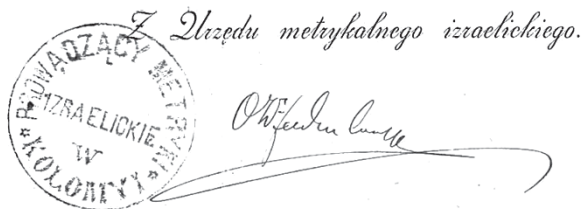 Z Urzędu metrykalnego izraelickiego.
PROWADZĄCY METRYKI
IZRAELICKIE
W
KOŁOMYI